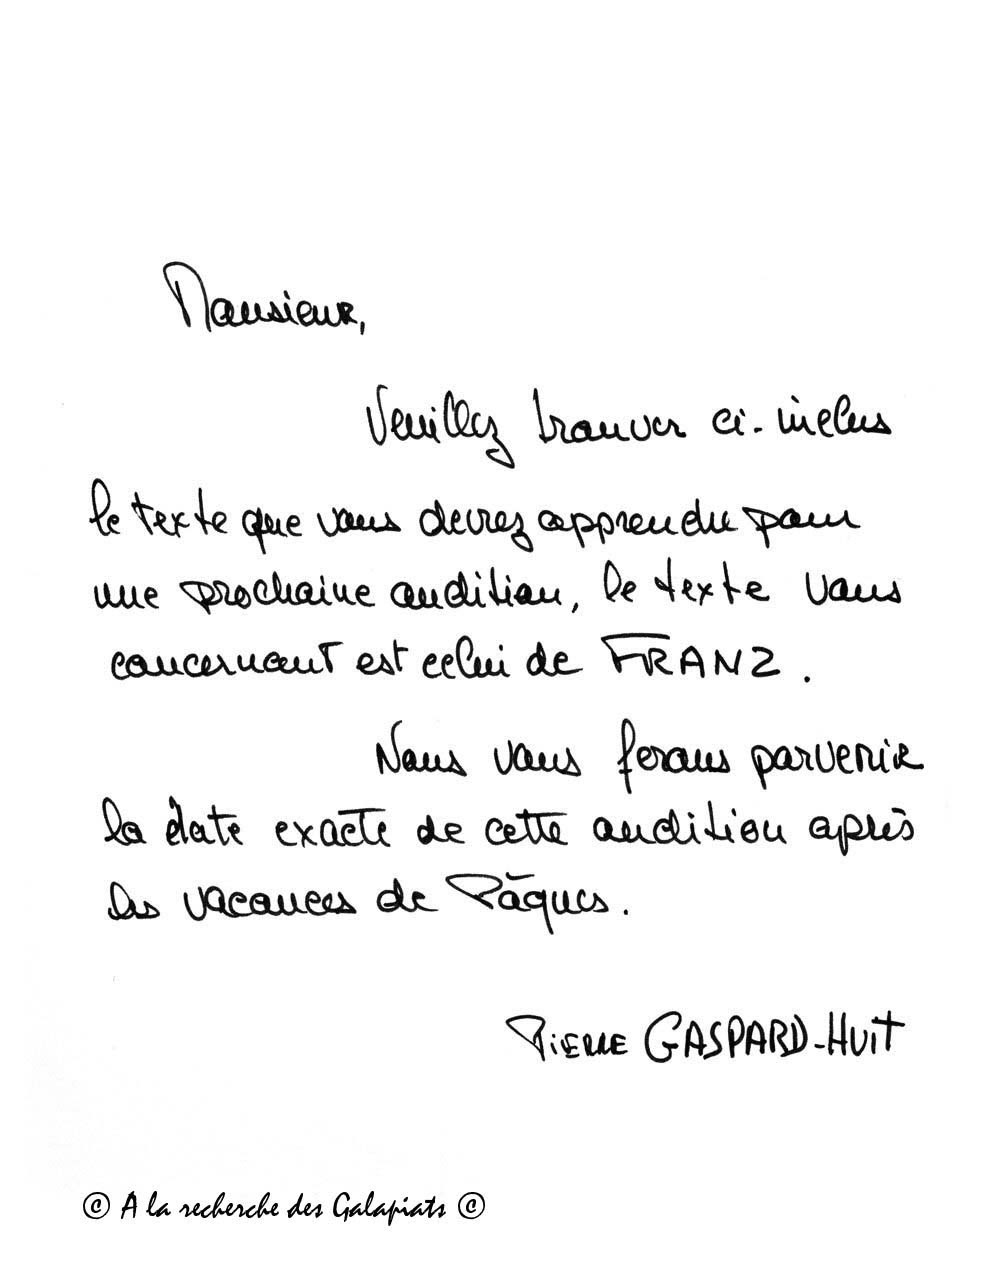 Monsieur,
Veuillez trouver ci-inclus
le texte que vous devrez apprendre pour
une prochaine audition, le texte vous
concernant est celui de FRANZ.
Nous vous ferons parvenir
la date exacte de cette audition après
les vacances de Pâques.
Pierre GASPARD-HUIT
© A la recherche des Galapiats ©